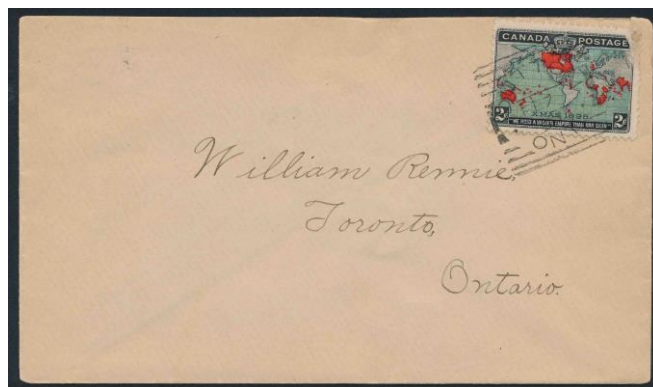 CANADA POSTAGE
XMAS 1898
2¢ "WE HOLD A VASTER EMPIRE THAN HAS BEEN" 2¢
NO
William Rennie,
Toronto,
Ontario.